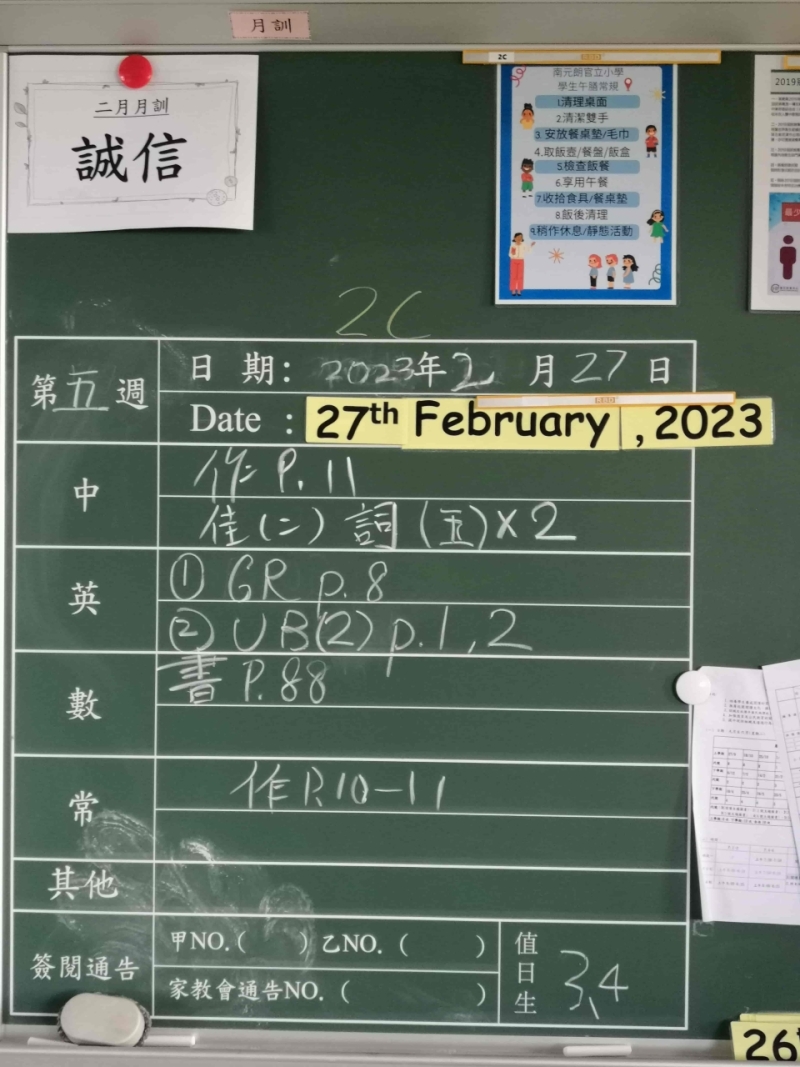 月訓
二月月訓
誠信
2C
南元朗官立小學
學生午膳常規
1.清理桌面
2.清潔雙手
3.安放餐桌墊/毛巾
4.取飯壺/餐盤/飯盒
5.檢查飯餐
6.享用午餐
7.收拾食具/餐桌墊
8.飯後清理
9.稍作休息/靜態活動
2019
2C
第五週
日期: 2023年2月27日
Date : 27th February, 2023
中
作 P.11
佳(二) 詞(五)×2
英
① GR p.8
② UB(2) p.1,2
數
書 P.88
常
作 P.10-11
其他
簽閱通告
甲NO.( ) 乙NO.( )
家教會通告NO.( )
值日生
3、4
26